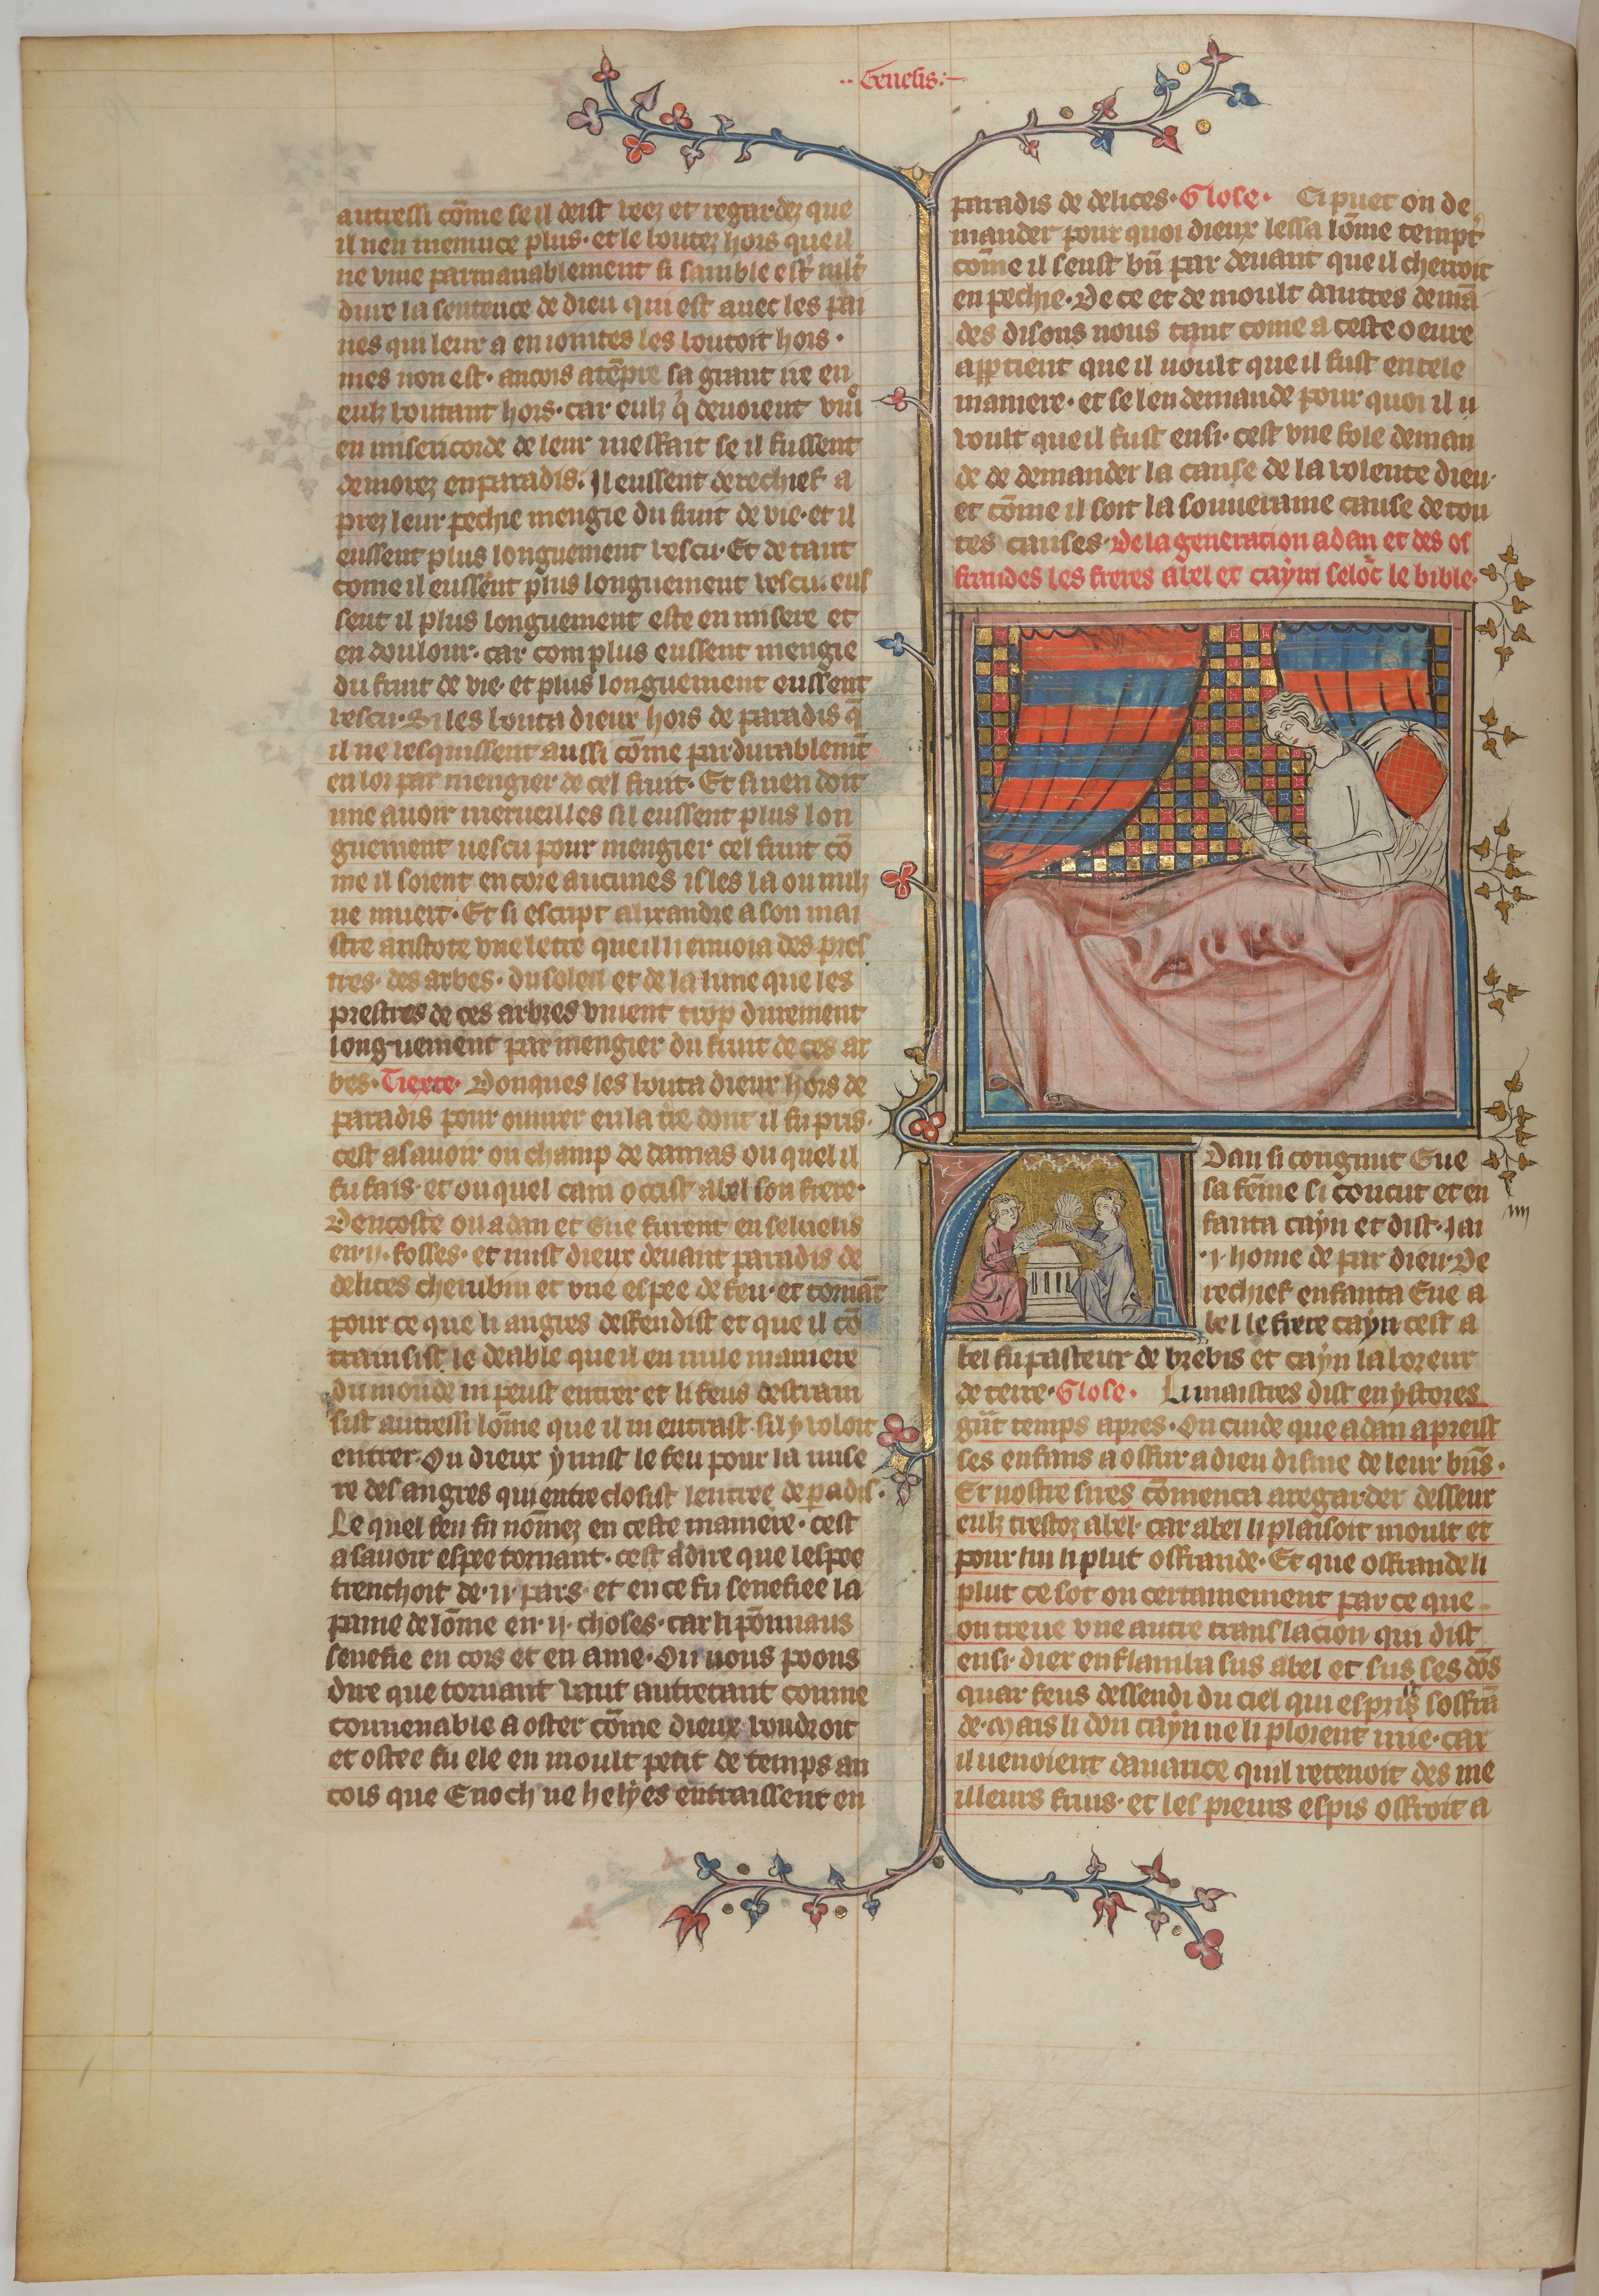 Genesis
autressi cōme se il deist veez et regardez que
il nen meniuce plus. et le boutez hors que il
ne viue parmanablement si samble estr̄ mlt̄
dure la sentence de dieu qui est auec les pai
nes qui leur a eniointes les boutoit hors.
mes non est. ancois atēpre sa grant ire en
eulz boutant hors. car eulz q̄ deuoient viure
en misericorde de leur meffait se il fussent
demorez en paradis. Il eussent derechief a
prez leur pechie mengie du fruit de vie. et il
eussent plus longuement vescu. Et de tant
come il eussent plus longuement vescu. eus
sent il plus longuement este en misere et
en doulour. car com plus eussent mengie
du fruit de vie. et plus longuement eussent
vescu. Si les bouta dieux hors de paradis q̄
il ne vesquissent aussi cōme pardurablemēt
en lor par mengier de cel fruit. Et si nen doit
nne auoir merueilles sil eussent plus lon
guement vescu pour mengier cel fruit cō
me il soient encore aucunes isles la ou nulz
ne muert. Et si escript alixandre a son mai
stre aristote vne letre que il li enuoia des pres
tres. des arbes. du soleil et de la lune que les
prestres de ces arbres viuent trop durement
longuement par mengier du fruit de ces ar
bes. Tiexte. Donques les bouta dieux hors de
paradis pour ouurer en la t̄re dont il fu pris.
cest asauoir ou champ de damas ou quel il
fu fais. et ou quel cain occist abel son frere.
Dencoste ou adan et Eue furent enseuelis
en .ij. fosses. et mist dieux deuant paradis de
delices cherubin et vne espee de feu. et tornāt
pour ce que li angres deffendist et que il cō
trainsist le deable que il en nule maniere
du monde ni peust entrer et li feus destrain
sist autressi lōme que il ni entrast sil y voloit
entrer. Ou dieux y mist le feu pour la mise
re des angres qui entreclosist lentree de paradis.
Le quel feu fu nōmez en ceste maniere. cest
asauoir espee tornant. cest adire que lespee
trenchoit de .ij. pars. et en ce fu senefiee la
paine de lōme en .ij. choses. car li pōmiaus
senefie en cors et en ame. Ou nous poons
dire que tornant vaut autretant comme
conuenable a oster cōme dieux voudroit
et ostee fu ele en moult petit de temps an
cois que Enoch ne helyes entraissent en
paradis de delices. Glose. Ci puet on de
mander pour quoi dieux lessa lōme tempt̄
cōme il seust bn̄ par deuant que il cherroit
en pechie. De ce et de moult dautres demā
des disons nous tant come a ceste oeure
appartient que il voult que il fust en tele
maniere. et se len demande pour quoi il u
voult que il fust ensi. cest vne fole deman
de de demander la cause de la volente dieu.
et cōme il soit la souueraine cause de tou
tes causes. De la generation adan et des of
frandes les freres abel et cayn selōc le bible.
Adan si congnut Eue
sa fēme si concut et en
fanta cayn et dist. Jai
.j. home de par dieu. De
rechief enfanta Eue a
bel le frere cayn cest a
bel fu pasteur de brebis et cayn laboreur
de terre. Glose. Li maistres dist en ystores
gr̄nt temps apres. On cuide que adan apreist
ses enfans a offrir a dieu disme de leur bn̄s.
Et nostre sires cōmenca aregarder desseur
eulz tresto₂ abel. car abel li plaisoit moult et
pour lui li plut offrande. Et que offrande li
plut ce sot on certainement par ce que
on treue vne autre translacion qui dist
ensi. diex enflamba sus abel et sus ses dōs
quar feus dessendi du ciel qui esprist soffrā
de. Mais li don cayn ne li plorent mie. car
il uenoient dauarice quil retenoit des me
illeurs fruis. et les pieurs espis offroit a